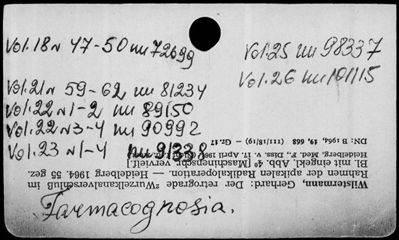 Vol.18 N 47-50 nu 72699
Vol.21 N 59-62 nu 81234
Vol.22 N 1-2 nu 89150
Vol.22 N 3-4 nu 90992
Vol.23 N 1-4 nu 91338
Vol.25 nu 98337
Vol.26 nu 101115
Farmacognosia.
Wüstermann, Gerhard: Der retrograde "Wurzelkanalverschluß im
Rahmen der apikalen Radikaloperation. — Heidelberg 1964. 55 gez.
Bl. mit eingekl. Abb. 4° [Maschinenschr. vervielf.]
Heidelberg, Med. F., Diss. v. 17. April 1964
DN: B 1964, 19. 668 (III/18/9) - Gr.-17